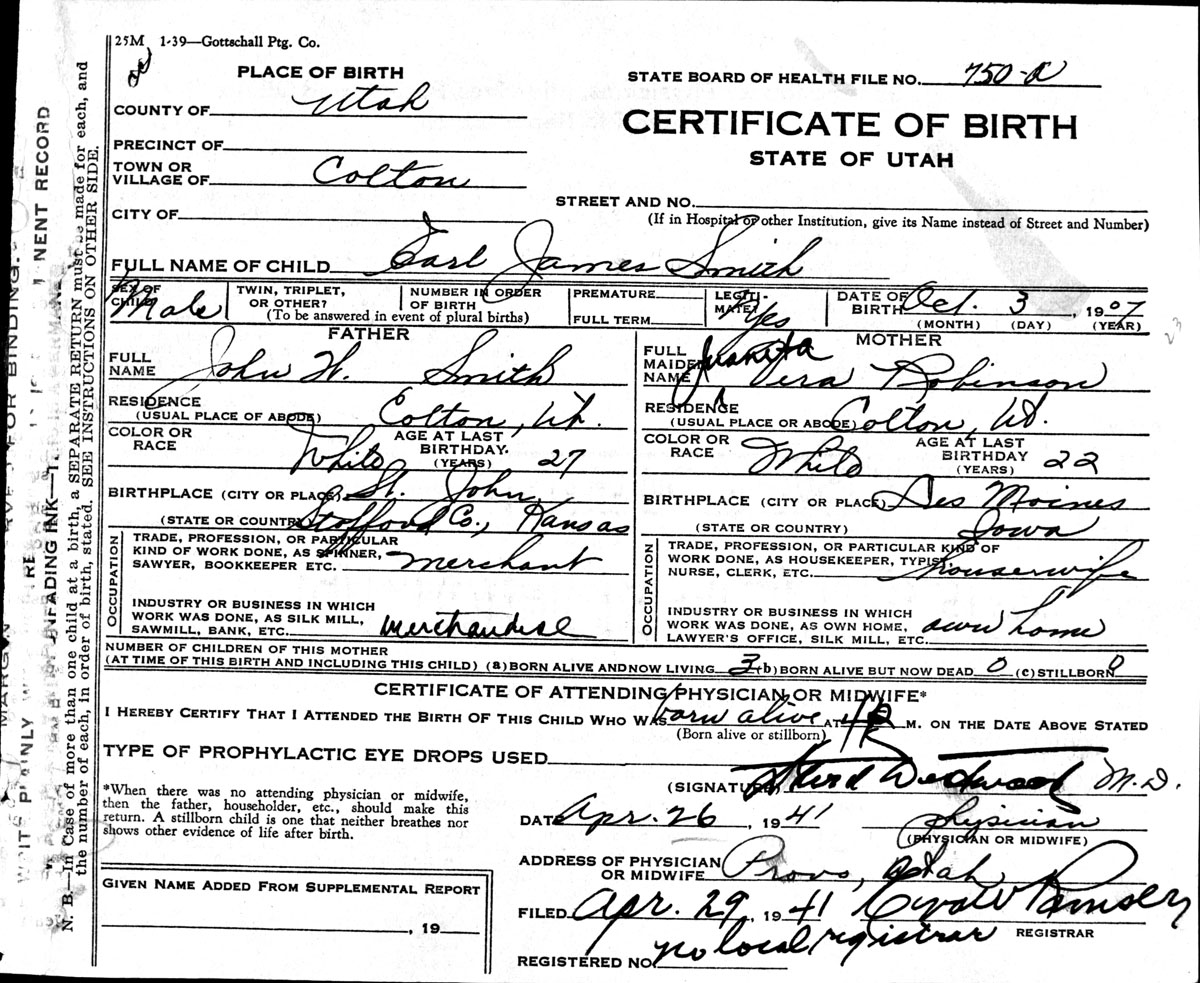 25M 1-39—Gottschall Ptg. Co.
PLACE OF BIRTH
STATE BOARD OF HEALTH FILE NO. 750-A
COUNTY OF Utah
CERTIFICATE OF BIRTH
STATE OF UTAH
PRECINCT OF
TOWN OR VILLAGE OF Colton
STREET AND NO.
(If in Hospital or other Institution, give its Name instead of Street and Number)
CITY OF
FULL NAME OF CHILD Earl James Smith
SEX OF CHILD Male
TWIN, TRIPLET, OR OTHER?
NUMBER IN ORDER OF BIRTH
(To be answered in event of plural births)
PREMATURE
FULL TERM
LEGITIMATE? Yes
DATE OF BIRTH Oct. 3, 1907
(MONTH) (DAY) (YEAR)
FATHER
FULL NAME John W. Smith
RESIDENCE (USUAL PLACE OF ABODE) Colton, Ut.
COLOR OR RACE White
AGE AT LAST BIRTHDAY (YEARS) 27
BIRTHPLACE (CITY OR PLACE) St. John,
(STATE OR COUNTRY) Stafford Co., Kansas
OCCUPATION
TRADE, PROFESSION, OR PARTICULAR
KIND OF WORK DONE, AS SPINNER,
SAWYER, BOOKKEEPER ETC. merchant
INDUSTRY OR BUSINESS IN WHICH
WORK WAS DONE, AS SILK MILL,
SAWMILL, BANK, ETC. Merchandise
MOTHER
FULL MAIDEN NAME Juanita Vera Robinson
RESIDENCE (USUAL PLACE OF ABODE) Colton, Ut.
COLOR OR RACE White
AGE AT LAST BIRTHDAY (YEARS) 22
BIRTHPLACE (CITY OR PLACE) Des Moines
(STATE OR COUNTRY) Iowa
OCCUPATION
TRADE, PROFESSION, OR PARTICULAR KIND OF
WORK DONE, AS HOUSEKEEPER, TYPIST,
NURSE, CLERK, ETC. housewife
INDUSTRY OR BUSINESS IN WHICH
WORK WAS DONE, AS OWN HOME,
LAWYER'S OFFICE, SILK MILL, ETC. own home
NUMBER OF CHILDREN OF THIS MOTHER
(AT TIME OF THIS BIRTH AND INCLUDING THIS CHILD) (a) BORN ALIVE AND NOW LIVING 3 (b) BORN ALIVE BUT NOW DEAD 0 (c) STILLBORN 0
CERTIFICATE OF ATTENDING PHYSICIAN OR MIDWIFE*
I HEREBY CERTIFY THAT I ATTENDED THE BIRTH OF THIS CHILD WHO WAS born alive AT M. ON THE DATE ABOVE STATED
(Born alive or stillborn)
TYPE OF PROPHYLACTIC EYE DROPS USED
*When there was no attending physician or midwife,
then the father, householder, etc., should make this
return. A stillborn child is one that neither breathes nor
shows other evidence of life after birth.
(SIGNATURE) Westwood M.D.
DATE Apr. 26, 1941 physician
(PHYSICIAN OR MIDWIFE)
ADDRESS OF PHYSICIAN OR MIDWIFE Provo, Utah
FILED Apr. 29, 1941
REGISTRAR
REGISTERED NO. no local registrar
GIVEN NAME ADDED FROM SUPPLEMENTAL REPORT
, 19
N. B.—In Case of more than one child at a birth, a SEPARATE RETURN must be made for each, and
the number of each, in order of birth, stated. SEE INSTRUCTIONS ON OTHER SIDE.